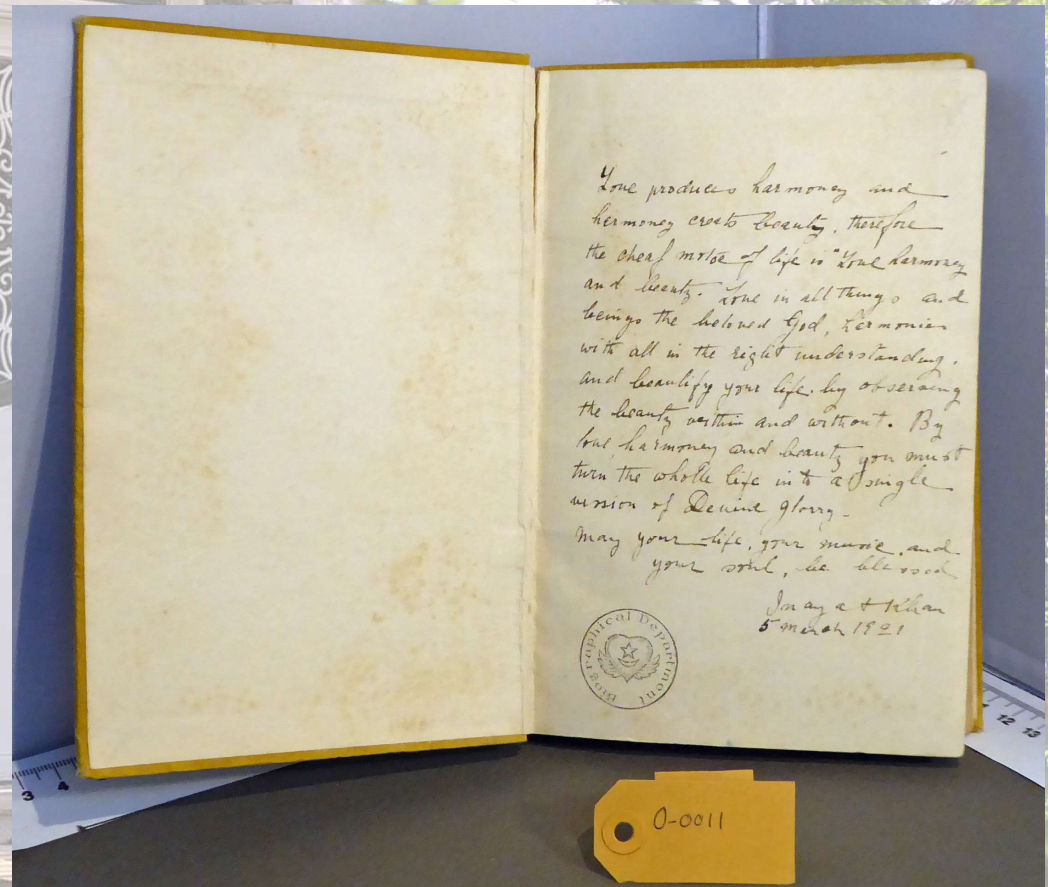 Love produces harmoney and
hermoney creats beauty, therefore
the cheaf motoe of life is "Love harmoney
and beauty. Love in all things and
beings the beloved God, hermonies
with all in the right understanding.
and beautify your life by observing
the beauty within and without. By
love, harmoney and beauty you must
turn the wholle life in to a single
vission of Devine glorry.
May your life, your music, and
your soul, be blessed
Inayat Khan
5 march 1921
Biographical Department
O-0011
3 4
12 13